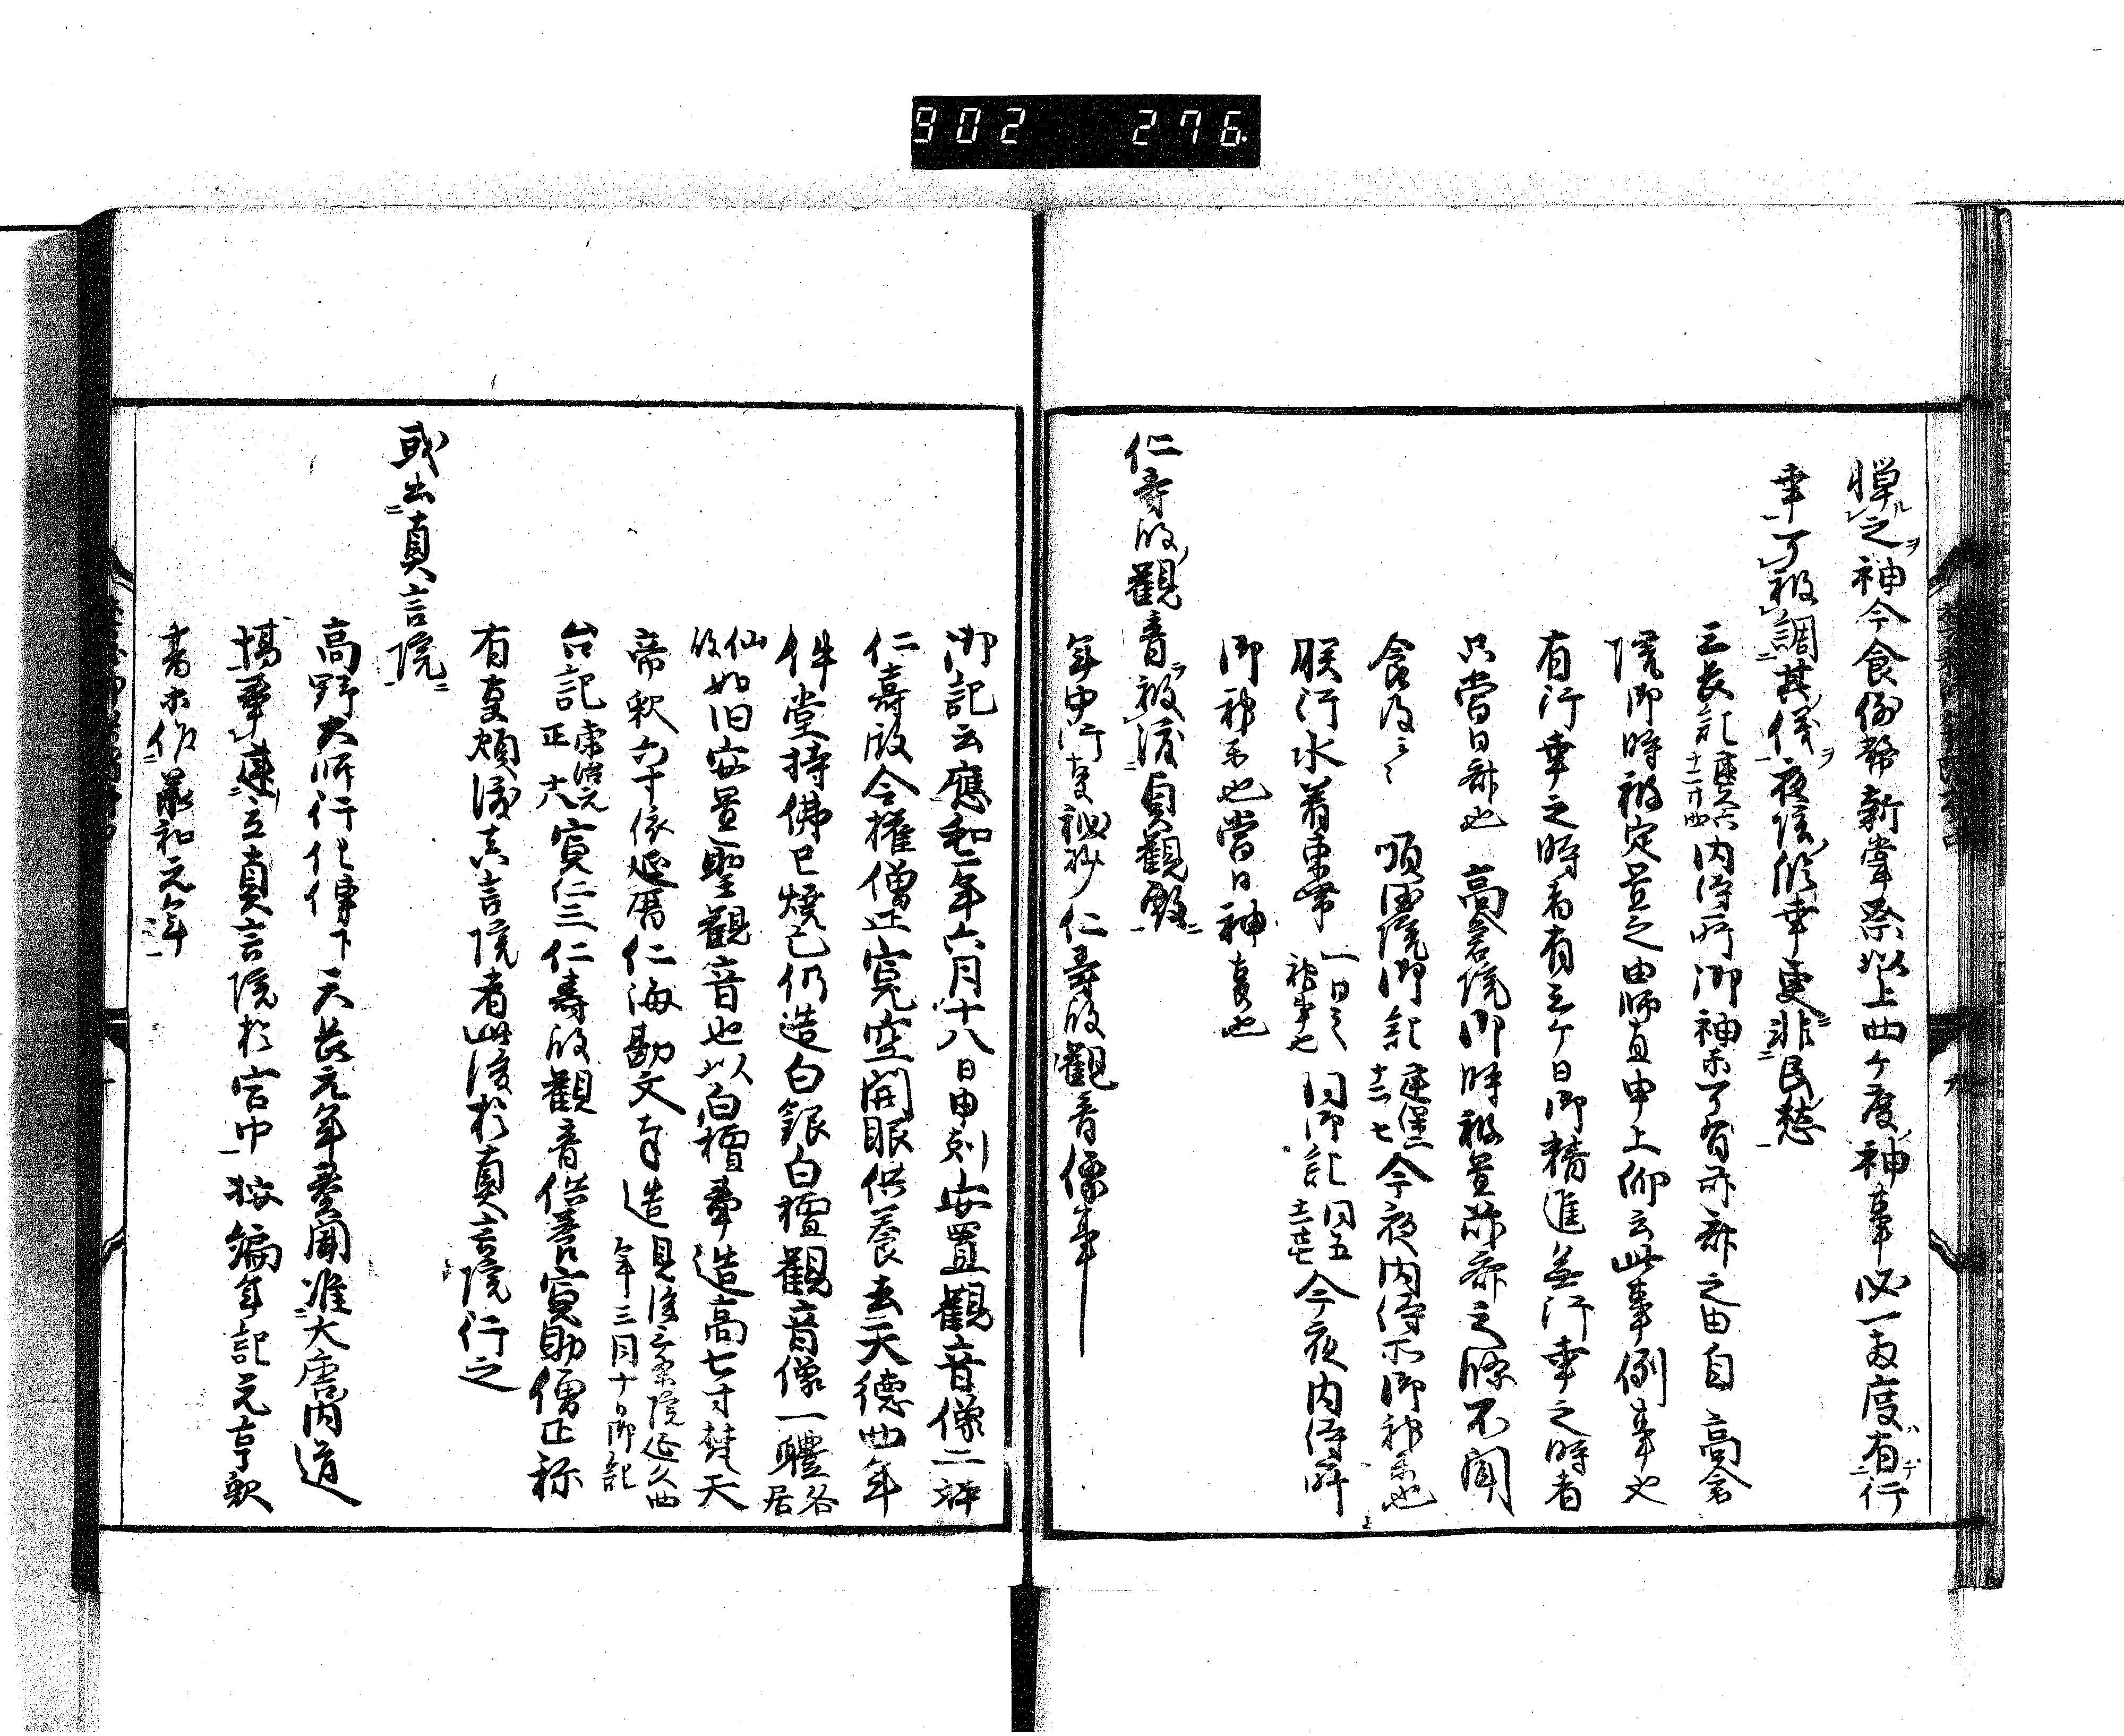 902 276
憚之神今食例幣新嘗祭以上四ケ度神事必一両度有行
幸了被調其儀夜陰臨幸更非民愁
三長記 内侍所御神楽了有亦節之由自高倉
院御時被定置之由師直申上仰云此事例事也
有行幸之時者有三ケ日御精進無行幸之時者
只當日斎也高倉院御時被置散斎之條不聞
食及云々 順徳院御記 建保二 十二七 今夜内侍所御神楽也
朕行水着束帯 一日之神事也 同御記 同五 今夜内侍所
御神楽也當日神事也
仁寿殿観音被渡貞観殿
年中行事秘抄仁寿殿観音像事
御記云應和二年六月十八日申刻安置観音像二躰
仁寿殿令権僧正寛空開眼供養去天徳四年
件堂持佛已焼亡仍造白銀白檀観音像一體 各居
仙殿如旧安置聖観音也以白檀奉造高七寸梵天
帝釈六寸依延暦仁海勘文奉造 見後三条院延久四年三月十日御記
台記 康治元 正十八 寛仁三仁寿殿観音供養寛助僧正称
有事煩渡真言院者此後於真言院行之
或出真言院
高野大師行化傳下天長元年奏聞准大唐内道
場奉建立真言院於宮中按編年記元亨釈
書等作承和元年